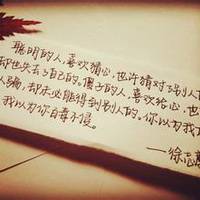 聪明的人，喜欢猜心，也许猜对了别人的
却也失去了自己的。傻子的人，喜欢给心，也
人骗，却未必能得到别人的。你以为我
我以为你百毒不侵。
——徐志摩